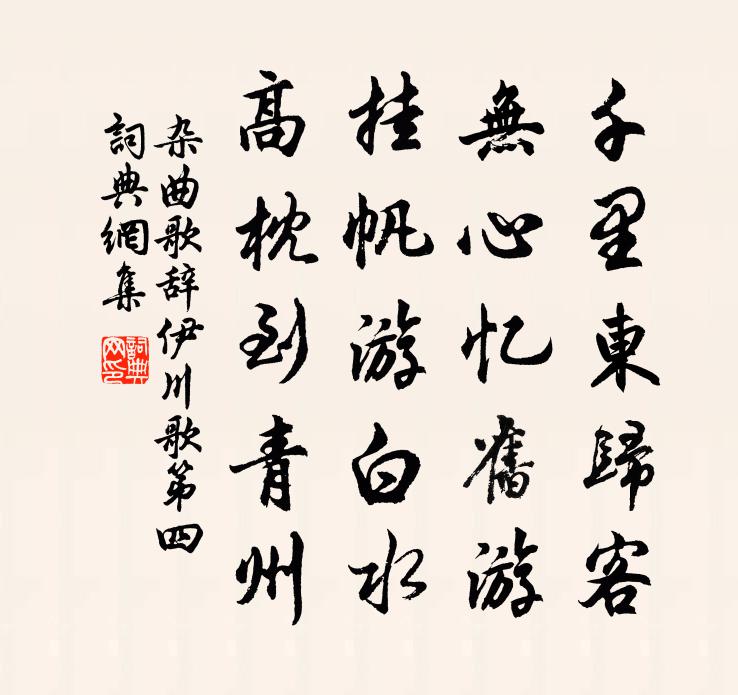 千里東歸客
無心忆舊游
挂帆游白水
高枕到青州
杂曲歌辞伊川歌第四
詞典網集
詞典網印